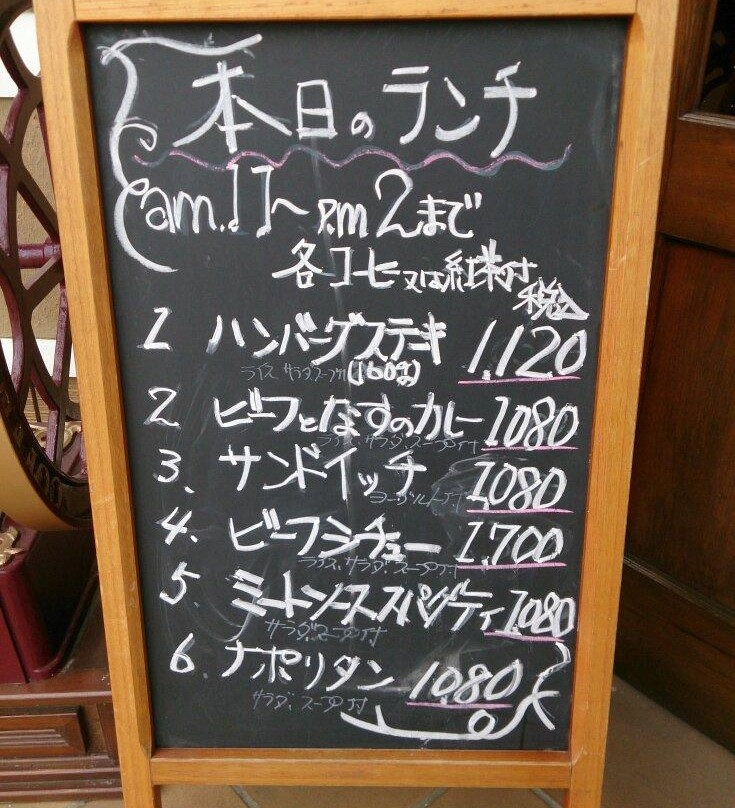 本日のランチ
am.11〜P.m2まで
各コーヒー又は紅茶付
税込
1 ハンバーグステーキ 1,120
ライス サラダ、スープ付 (160g)
2 ビーフとなすのカレー 1080
ライス、サラダ、スープ付
3. サンドイッチ 1,080
ヨーグルト付
4. ビーフシチュー 1,700
ライス、サラダ、スープ付
5. ミートソーススパゲティ 1,080
サラダ、スープ付
6. ナポリタン 1,080
サラダ、スープ付